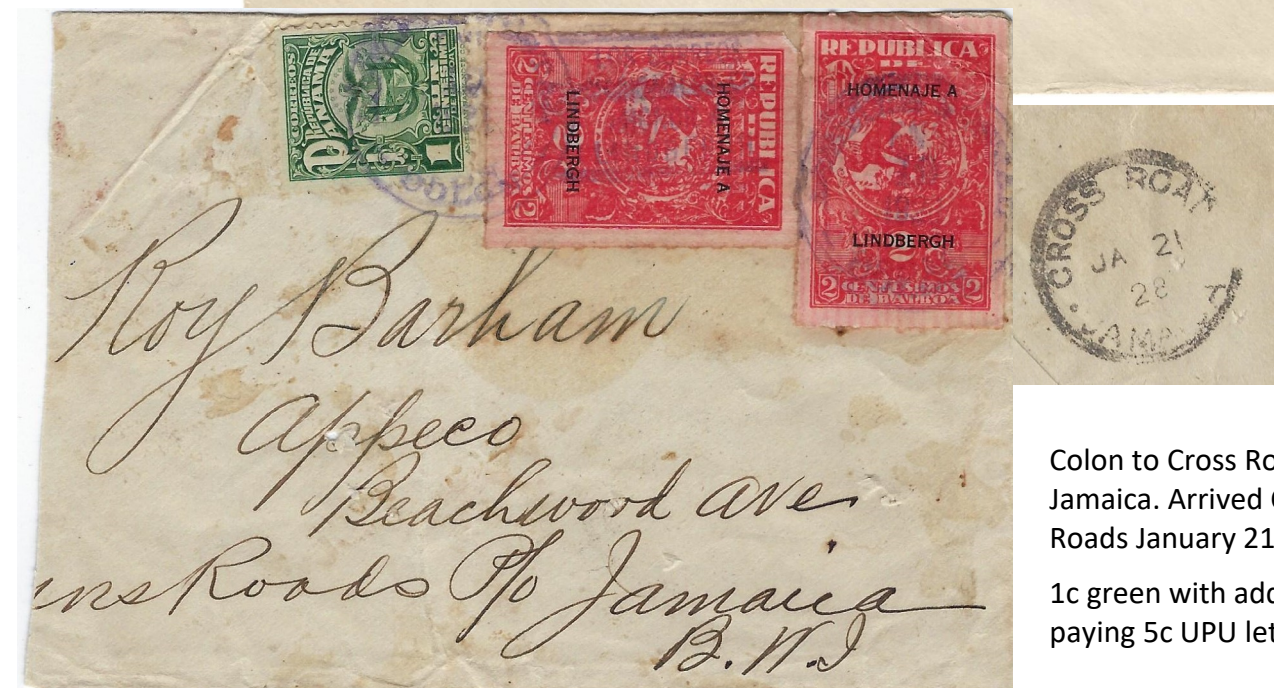 CORREOS
REPUBLICA DE
PANAMA
1
REPUBLICA
DE
HOMENAJE A
LINDBERGH
2 2
CENTESIMOS
DE BALBOA
REPUBLICA
DE
HOMENAJE A
LINDBERGH
2
2 CENTESIMOS 2
DE BALBOA
Roy Barham
Appeco
Beachwood Ave
Roads P/o Jamaica
B.W.I
CROSS ROA
JA 21
28
JAMA
Colon to Cross Ro
Jamaica. Arrived
Roads January 21
1c green with add
paying 5c UPU let